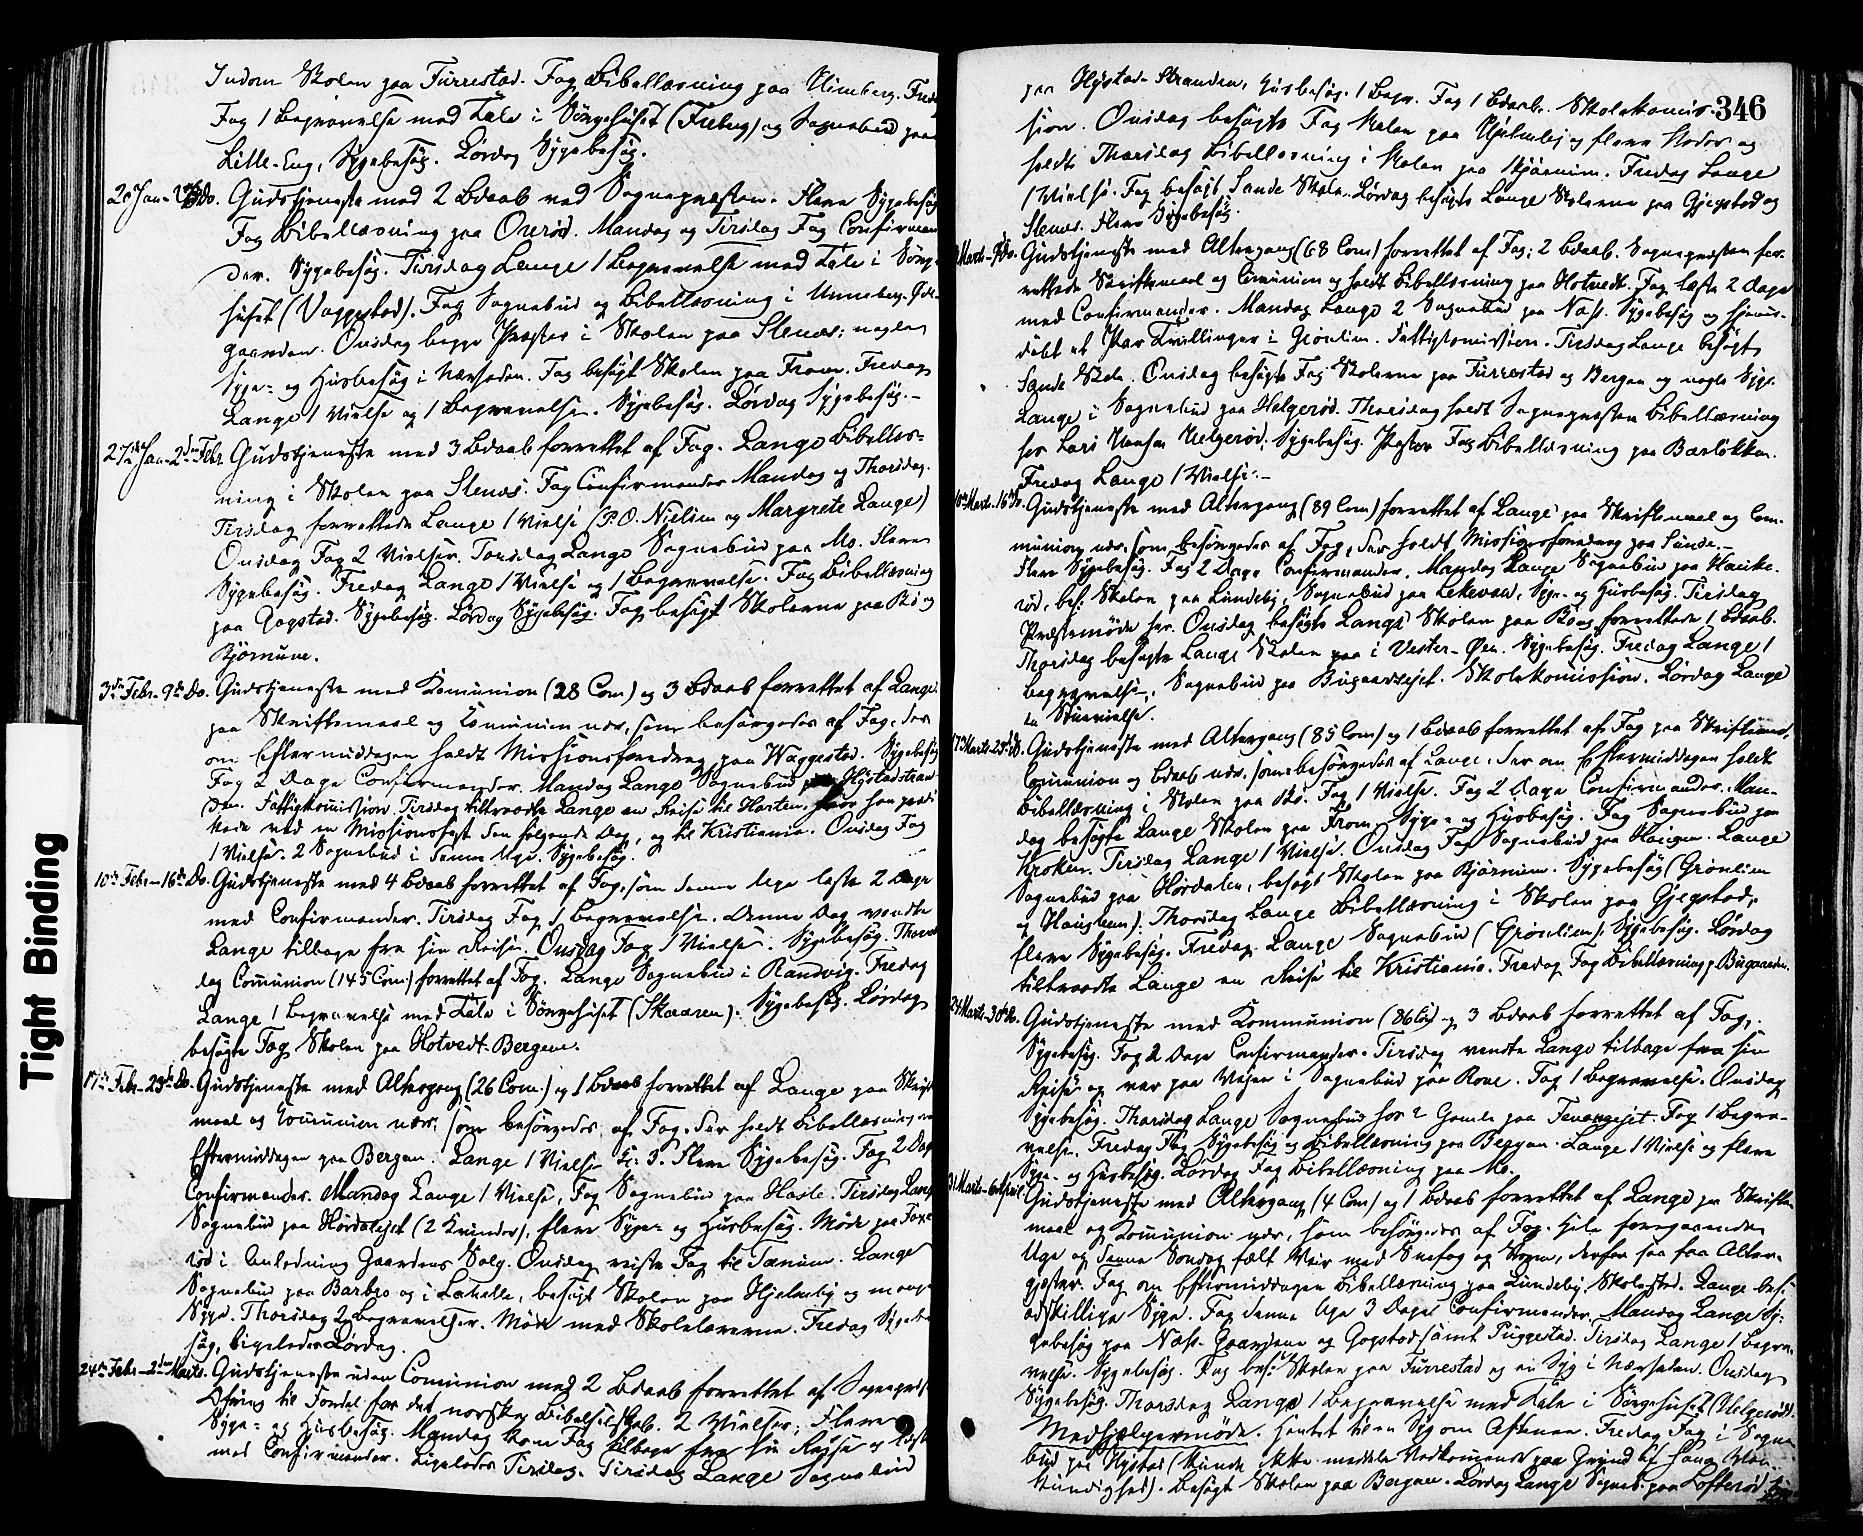 Indom Skolen paa Furrestad. Fag Bibellæsning paa Unneberg. Fredag
Fag 1 Begravelse med Tale i Sørgehuset (Freberg) og Sognebud paa
Lille-Eng, Sygebesøg. Lørdag Sygebesøg.
20 Jan - do. Gudstjeneste med 2 Bdaab ved Sognepræsten. Flere Sygebesøg
Fag Bibellæsning paa Onerød. Mandag og Tirsdag Fag Confirman
der. Sygebesøg. Tirsdag Lange 1 Begravelse med Tale i Sørge
huset (Vaggestad). Fag Sognebud og Bibellæsning i Unneberg-
gaarden. Onsdag begge Præster i Skolen paa Stenæs; nogle
Syge- og Husbesøg i Nærheden. Fag besøgt Skolen paa Fram. Fredag
Lange 1 Vielse og 1 Begravelse. Sygebesøg. Lørdag Sygebesøg.-
27de Jan-2den Febr. Gudstjeneste med 3 Bdaab forrettet af Fag. Lange Bibellæs-
ning i Skolen paa Stenæs. Fag Confirmander Mandag og Thorsdag.
Tirsdag forrettede Lange 1 Vielse (P.O. Nielsen og Margrete Lange)
Onsdag Fag 2 Vielser. Torsdag Lange Sognebud paa Mo. Flere
Sygebesøg. Fredag Lange 1 Vielse og 1 Begravelse. Fag Bibellæsning
paa Gogstad. Sygebesøg. Lørdag Sygebesøg. Fag besøgt Skolerne paa Bø og
Bjørnum.
3die Febr-9de do. Gudstjeneste med Komunion (28 Com) og 3 Bdaab forrettet af Lange
paa Skriftemaal og Comunion nær, som besørgedes af Fag, der
om Eftermiddagen holdt Missionsforedrag paa Waggestad. Sygebesøg
Fag 2 Dage Confirmander. Mandag Lange Sognebud paa Hystadstran
den. Fattigkomission. Tirsdag tiltraadte Lange en Reise til Horten, hvor han prædi
kede ved en Missionsfest den følgende Dag, og til Kristiania. Onsdag Fag
1 Vielse. 2 Sognebud i denne Uge. Sygebesøg.
10de Febr-16de Do. Gudstjeneste med 4 Bdaab forrettet af Fag, som denne Uge læste 2 Dage
med Confirmander. Tirsdag Fag 1 Begravelse. Denne Dag vendte
Lange tilbage fra sin Reise. Onsdag Fag 1 Vielse. Sygebesøg. Thors
dag Communion (145 Com) forrettet af Fag. Lange Sognebud i Ranvig. Fredag
Lange 1 Begravelse med Tale i Sørgehuset (Skaaren). Sygebesøg. Lørdag
besøgte Fag Skolen paa Hotvedt-Bergene.
17de Febr-23de do. Gudstjeneste med Altergang (26 Com.) og 1 Bdaab forrettet af Lange paa Skrift
maal og Comunion nær, som besørgedes af Fag, der holdt Bibellæsning om
Eftermiddagen paa Bergan. Lange 1 Vielse Flere Sygebesøg. Fag 2 Dage
Confirmander. Mandag Lange 1 Vielse, Fag Sognebud paa Hasle. Tirsdag Lange
Sognebud paa Hørdalejet (2 Kvinder), flere Syge- og Husbesøg. Møde paa Foxe
rød i Anledning Gaardens Salg. Onsdag reiste Fag til Tanum. Lange
Sognebud paa Bærbyo og i Lahelle, besøgt Skolen paa Hjelmby og mange
Syge. Thorsdag 2 Begravelser. Møde med Skolelærerne. Fredag Sygebe
søg, ligeledes Lørdag.
24de Febr-2den Marts. Gudstjeneste uden Comunion med 2 Bdaab forrettet af Sognepræst
Ofring til Fordel for det norske Bibelselskab. 2 Vielser, Flere
Syge- og Husbesøg. Mandag kom Fag tilbage fra sin Reise og læste
med Confirmander. Ligeledes Tirsdag. Tirsdag Lange Sognebud
346
paa Hystad-Stranden, Husbesøg. 1 Begr. Fag 1 Bdaab. Skolekomis-
sion. Onsdag besøgte Fag Skolen paa Hjelmby og flere Steder og
holdt Thorsdag Bibellæsning i Skolen paa Bjørnum. Fredag Lange
1 Vielse. Fag besøgt Sande Skole. Lørdag besøgte Lange Skolerne paa Gjegstad og
Stenæs. Flere Sygebesøg.
Marts-9 do. Gudstjeneste med Altergang (68 Com) forrettet af Fag; 2 Bdaab. Sognepræsten for-
rettede Skriftemaal og Comunion og holdt Bibellæsning paa Hotvedt. Fag læste 2 Dage
med Confirmander. Mandag Lange 2 Sognebud paa Næs. Sygebesøg og hjemme-
døbt et Par Tvillinger i Grønlien. Fattigkomission. Tirsdag Lange besøgt
Sande Skole. Onsdag besøgte Fag Skolerne paa Furrestad og Bergan og nogle Syge.
Lange i Sognebud paa Helgerød. Thorsdag holdt Sognepræsten Bibellæsning
hos Lars Hansen Helgerød. Sygebesøg. Pastor Fag Bibellæsning paa Bærløkken.
Fredag Lange 1 Vielse.-
10de Marts-16de do. Gudstjeneste med Altergang (89 Com) forrettet af Lange paa Skriftemaal og Com-
munion nær, som besørgedes af Fag, der holdt Missionsforedrag paa Sunde.-
Flere Sygebesøg. Fag 2 Dage Confirmander. Mandag Lange Sognebud paa Hauke-
rød, bes. Skolen paa Lundeby, Sognebud paa Lekevold, Syge- og Husbesøg. Tirsdag
Præstemøde her. Onsdag besøgte Lange Skolen paa Bø og forrettede 1 Bdaab.
Thorsdag besøgte Lange Skolen paa i Vester-Øen. Sygebesøg. Fredag Lange 1
Begravelse, Sognebud paa Bugaardsejet. Skolekomission. Lørdag Lange
17 Marts-23de do. Gudstjeneste med Altergang (85 Com) og 1 Bdaab forrettet af Fag paa Skriftemaal,
Comunion og Bdaab nær, som besørgedes af Lange, der om Eftermiddagen holdt
Bibellæsning i Skolen paa Bø. Fag 1 Vielse. Fag 2 Dage Confirmander. Man-
dag besøgte Lange Skolen paa Fram, Syge- og Husbesøg. Fag Sognebud paa
Kroken. Tirsdag Lange 1 Vielse. Onsdag Fag Sognebud paa Haugen. Lange
Sognebud paa Hørdalen, besøgt Skolen paa Bjørnum. Sygebesøg (Grønlien
og Haugen). Thorsdag Lange Bibellæsning i Skolen paa Gjegstad,
flere Sygebesøg. Fredag Lange Sognebud (Grønlien). Sygebesøg. Lørdag
tiltraadte Lange en Reise til Kristiania. Fredag Fag Bibellæsning p. Bugaarden.
24 Marts-30 do. Gudstjeneste med Kommunion (86 Co) og 3 Bdaab forrettet af Fag,
Sygebesøg. Fag 2 Dage Confirmander. Tirsdag vendte Lange tilbage fra sin
Reise og var paa Vejen i Sognebud paa Roae. Fag 1 Begravelse. Onsdag
Sygebesøg. Thorsdag Lange Sognebud hos 2 Gamle paa Tevangejet. Fag 1 Begra-
velse. Fredag Fag Sygebesøg og Bibellæsning paa Bergan. Lange 1 Vielse og flere
Syge- og Husbesøg. Lørdag Fag Bibellæsning paa Mo.
31 Marts-6 April. Gudstjeneste med Altergang (4 Com) og 1 Bdaab forrettet af Lange paa Skrifte-
maal og Komunion nær, som besørgedes af Fag. Hele foregaaende
Uge og denne Søndag fælt Veir med Snefog og Storm, derfor saa faa Alter-
gjester. Fag om Eftermiddagen Bibellæsning paa Lundeby Skolested. Lange bes.
adskillige Syge. Fag denne Uge 3 Dage Confirmander. Mandag Lange Sy-
gebesøg paa Næs-Gaardene og Gogstad samt Puggestad. Tirsdag Lange 1 Begra-
velse. Sygebesøg. Fag bes. Skolen paa Furrestad og en Syg i Nærheden. Onsdag
Sygebesøg. Thorsdag Lange 1 Begravelse med Tale i Sørgehuset (Helgerød).
Medhjælpermøde. Hentet til en Syg om Aftenen. Fredag Fag i Sogne
bud paa Hystad (kunde ikke meddele Vedkommende paa Grund af hans
kundighed). Besøgt Skolen paa Bergan. Lørdag Lange Sogneb. paa Lofterød
Tight Binding